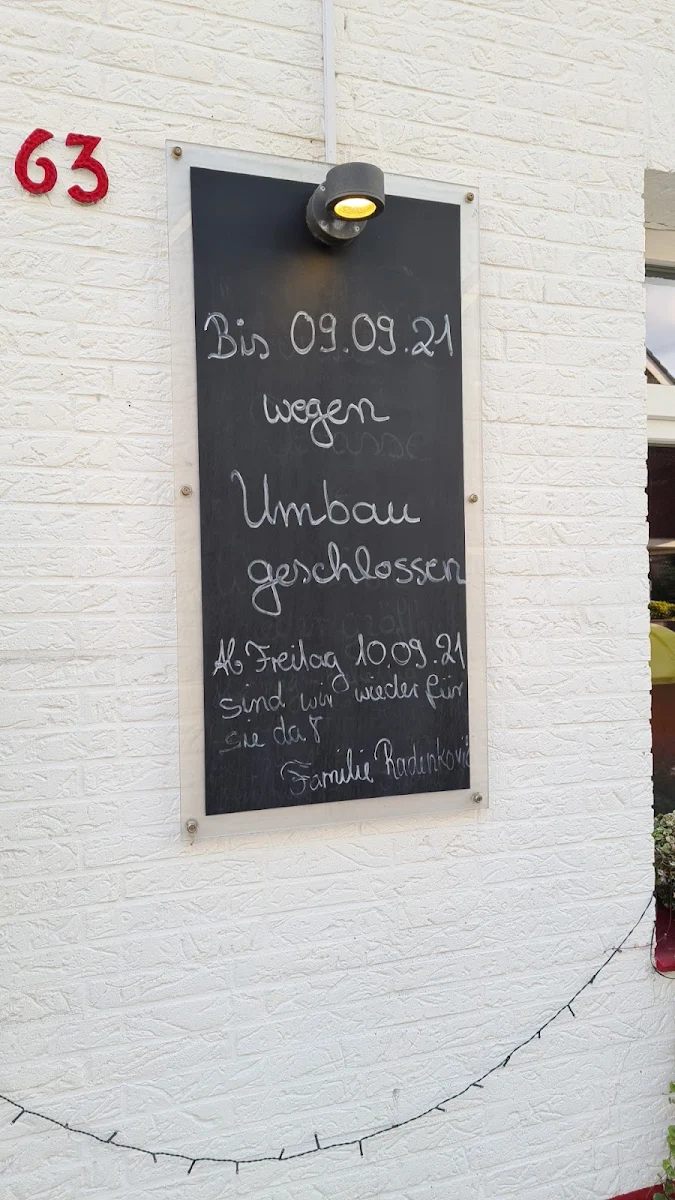 63
Bis 09.09.21
wegen
Umbau
geschlossen
Ab Freitag 10.09.21
sind wir wieder für
sie da!
Familie Radenković